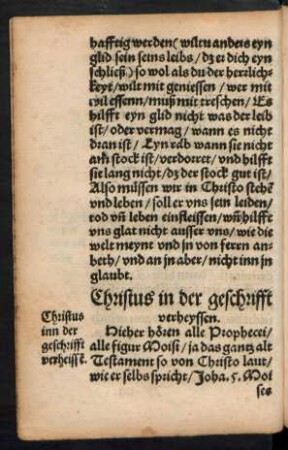 hafftig werden (wiltu anders eyn
glid sein seins leibs / dz er dich eyn
schließ) so wol als du der herrlich-
keyt / wilt mit geniessen / wer mit
wil essenn / muß mit treschen / Es
hilfft eyn glid nicht was der leib
ist / oder vermag / wann es nicht
dran ist / Eyn räb wann sie nicht
am stock ist / verdorret / und hilfft
sie lang nicht / dz der stock gut ist /
Also müssen wir in Christo stehē
und leben / soll er uns sein leiden /
tod uñ leben einfleissen / uñ hilfft
uns glat nicht ausser uns / wie die
welt meynt und jn von ferren an-
beth / und an jn aber / nicht inn jn
glaubt.
Christus in der geschrifft
verheyssen.
Christus
inn der
geschrifft
verheissē.
Hieher hören alle Prophecei /
alle figur Moisi / ja das gantz alt
Testament so von Christo laut /
wie er selbs spricht / Joha. 5. Moi
ses